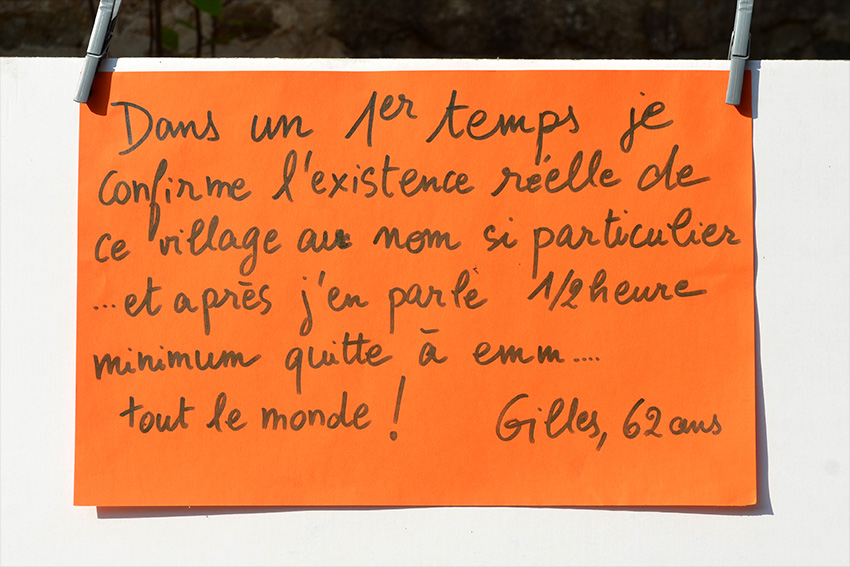 Dans un 1er temps je
confirme l'existence réelle de
ce village au nom si particulier
...et après j'en parle 1/2 heure
minimum quitte à emm....
tout le monde !
Gilles, 62 ans